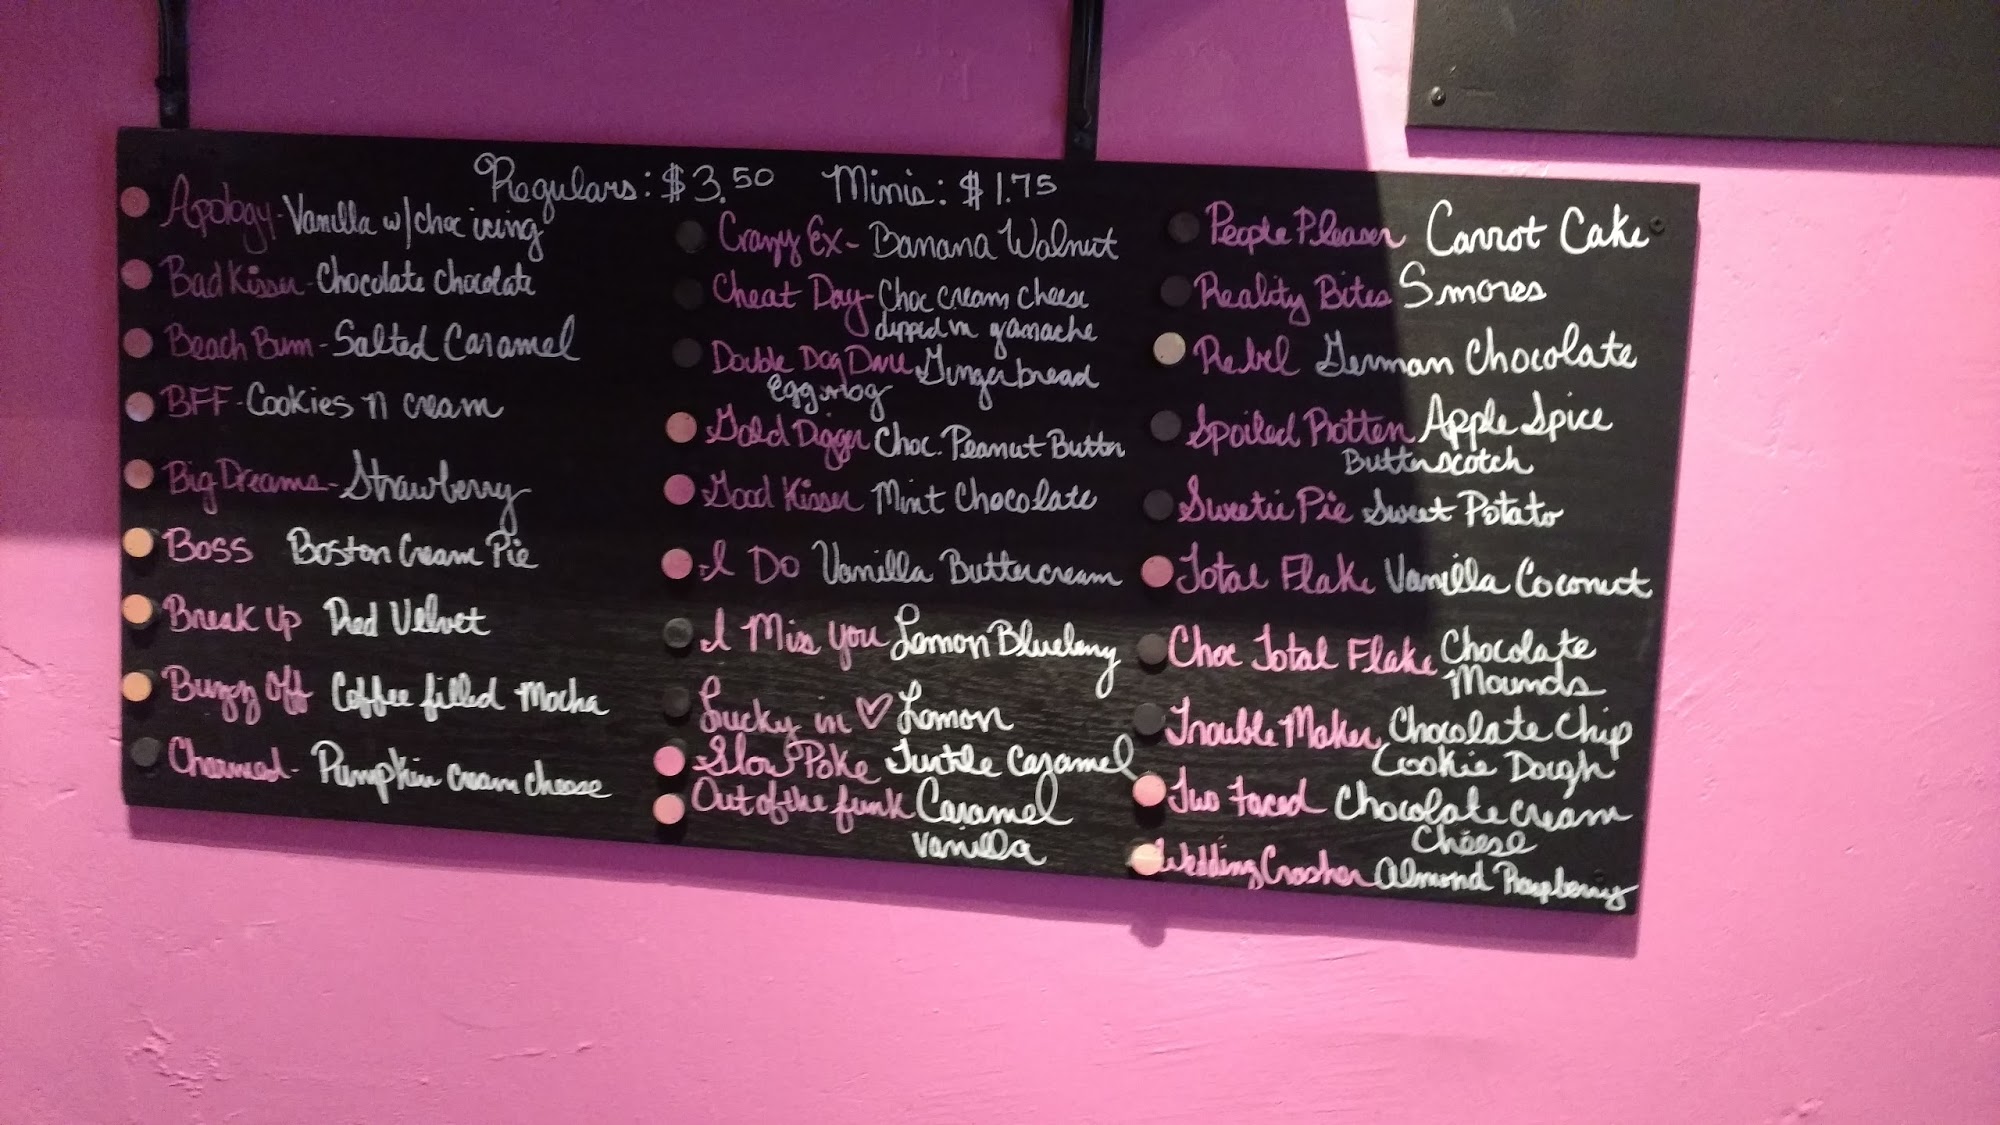 Regulars: $3.50 Minis: $1.75
Apology - Vanilla w/choc icing
Bad Kisser - Chocolate Chocolate
Beach Bum - Salted Caramel
BFF - Cookies n cream
Big Dreams - Strawberry
Boss Boston Cream Pie
Break Up Red Velvet
Buzz Off Coffee filled Mocha
Charmed - Pumpkin cream cheese
Crazy Ex - Banana Walnut
Cheat Day Choc cream cheese
dipped in ganache
Double Dog Dare Gingerbread
Eggnog
Gold Digger Choc. Peanut Butter
Good Kisser Mint Chocolate
I Do Vanilla Buttercream
I Miss You Lemon Blueberry
Lucky in ♡ Lemon
Slow Poke Turtle Caramel
Out of the funk Caramel
Vanilla
People Pleaser Carrot Cake
Reality Bites Smores
Rebel German Chocolate
Spoiled Rotten Apple Spice
Butterscotch
Sweetie Pie Sweet Potato
Total Flake Vanilla Coconut
Choc Total Flake Chocolate
Mounds
Trouble Maker Chocolate Chip
Cookie Dough
Two Faced Chocolate cream
Cheese
Wedding Crasher Almond Raspberry